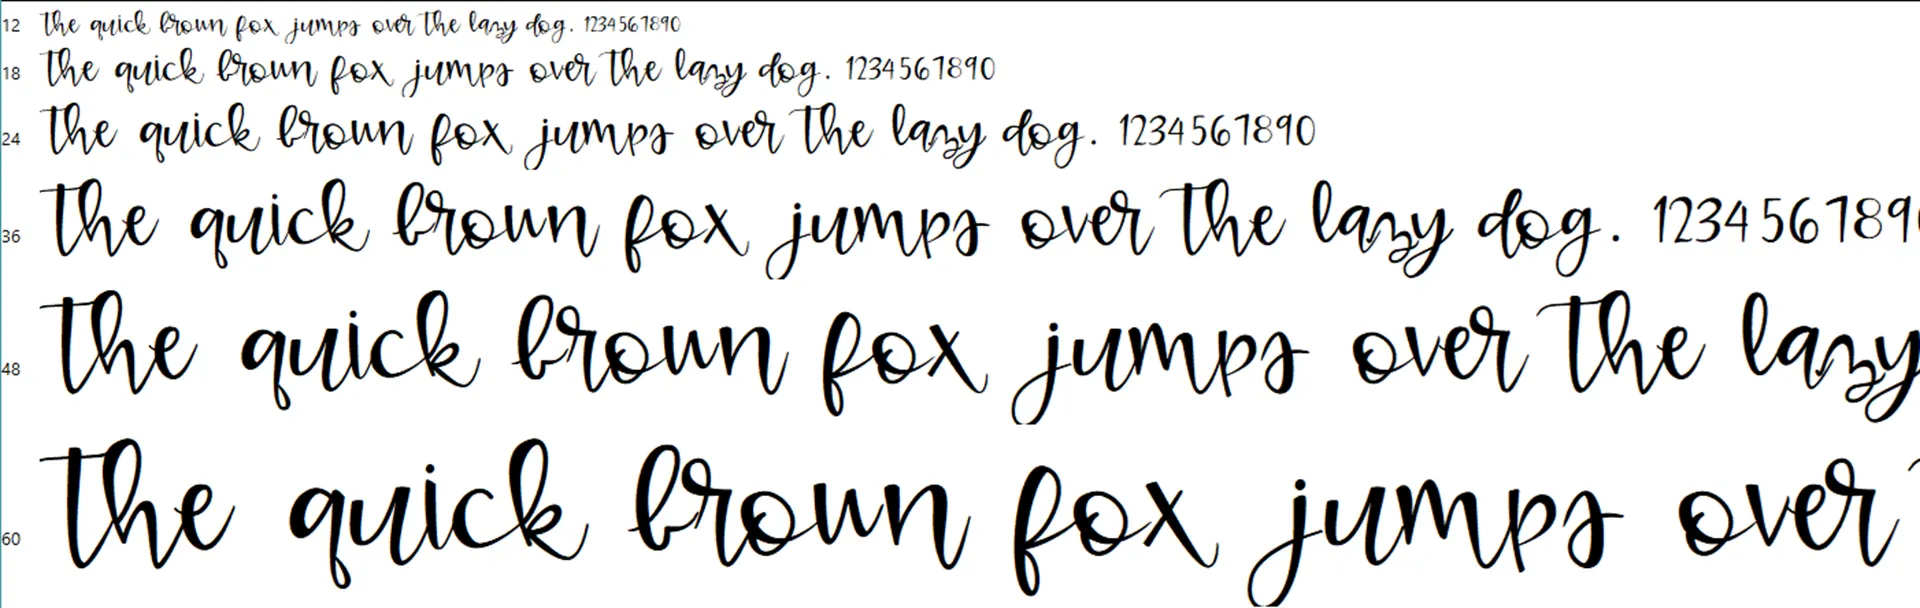 12 the quick brown fox jumps over the lazy dog. 1234567890
18 the quick brown fox jumps over the lazy dog. 1234567890
24 the quick brown fox jumps over the lazy dog. 1234567890
36 the quick brown fox jumps over the lazy dog. 123456789
48 the quick brown fox jumps over the lazy
60 the quick brown fox jumps over